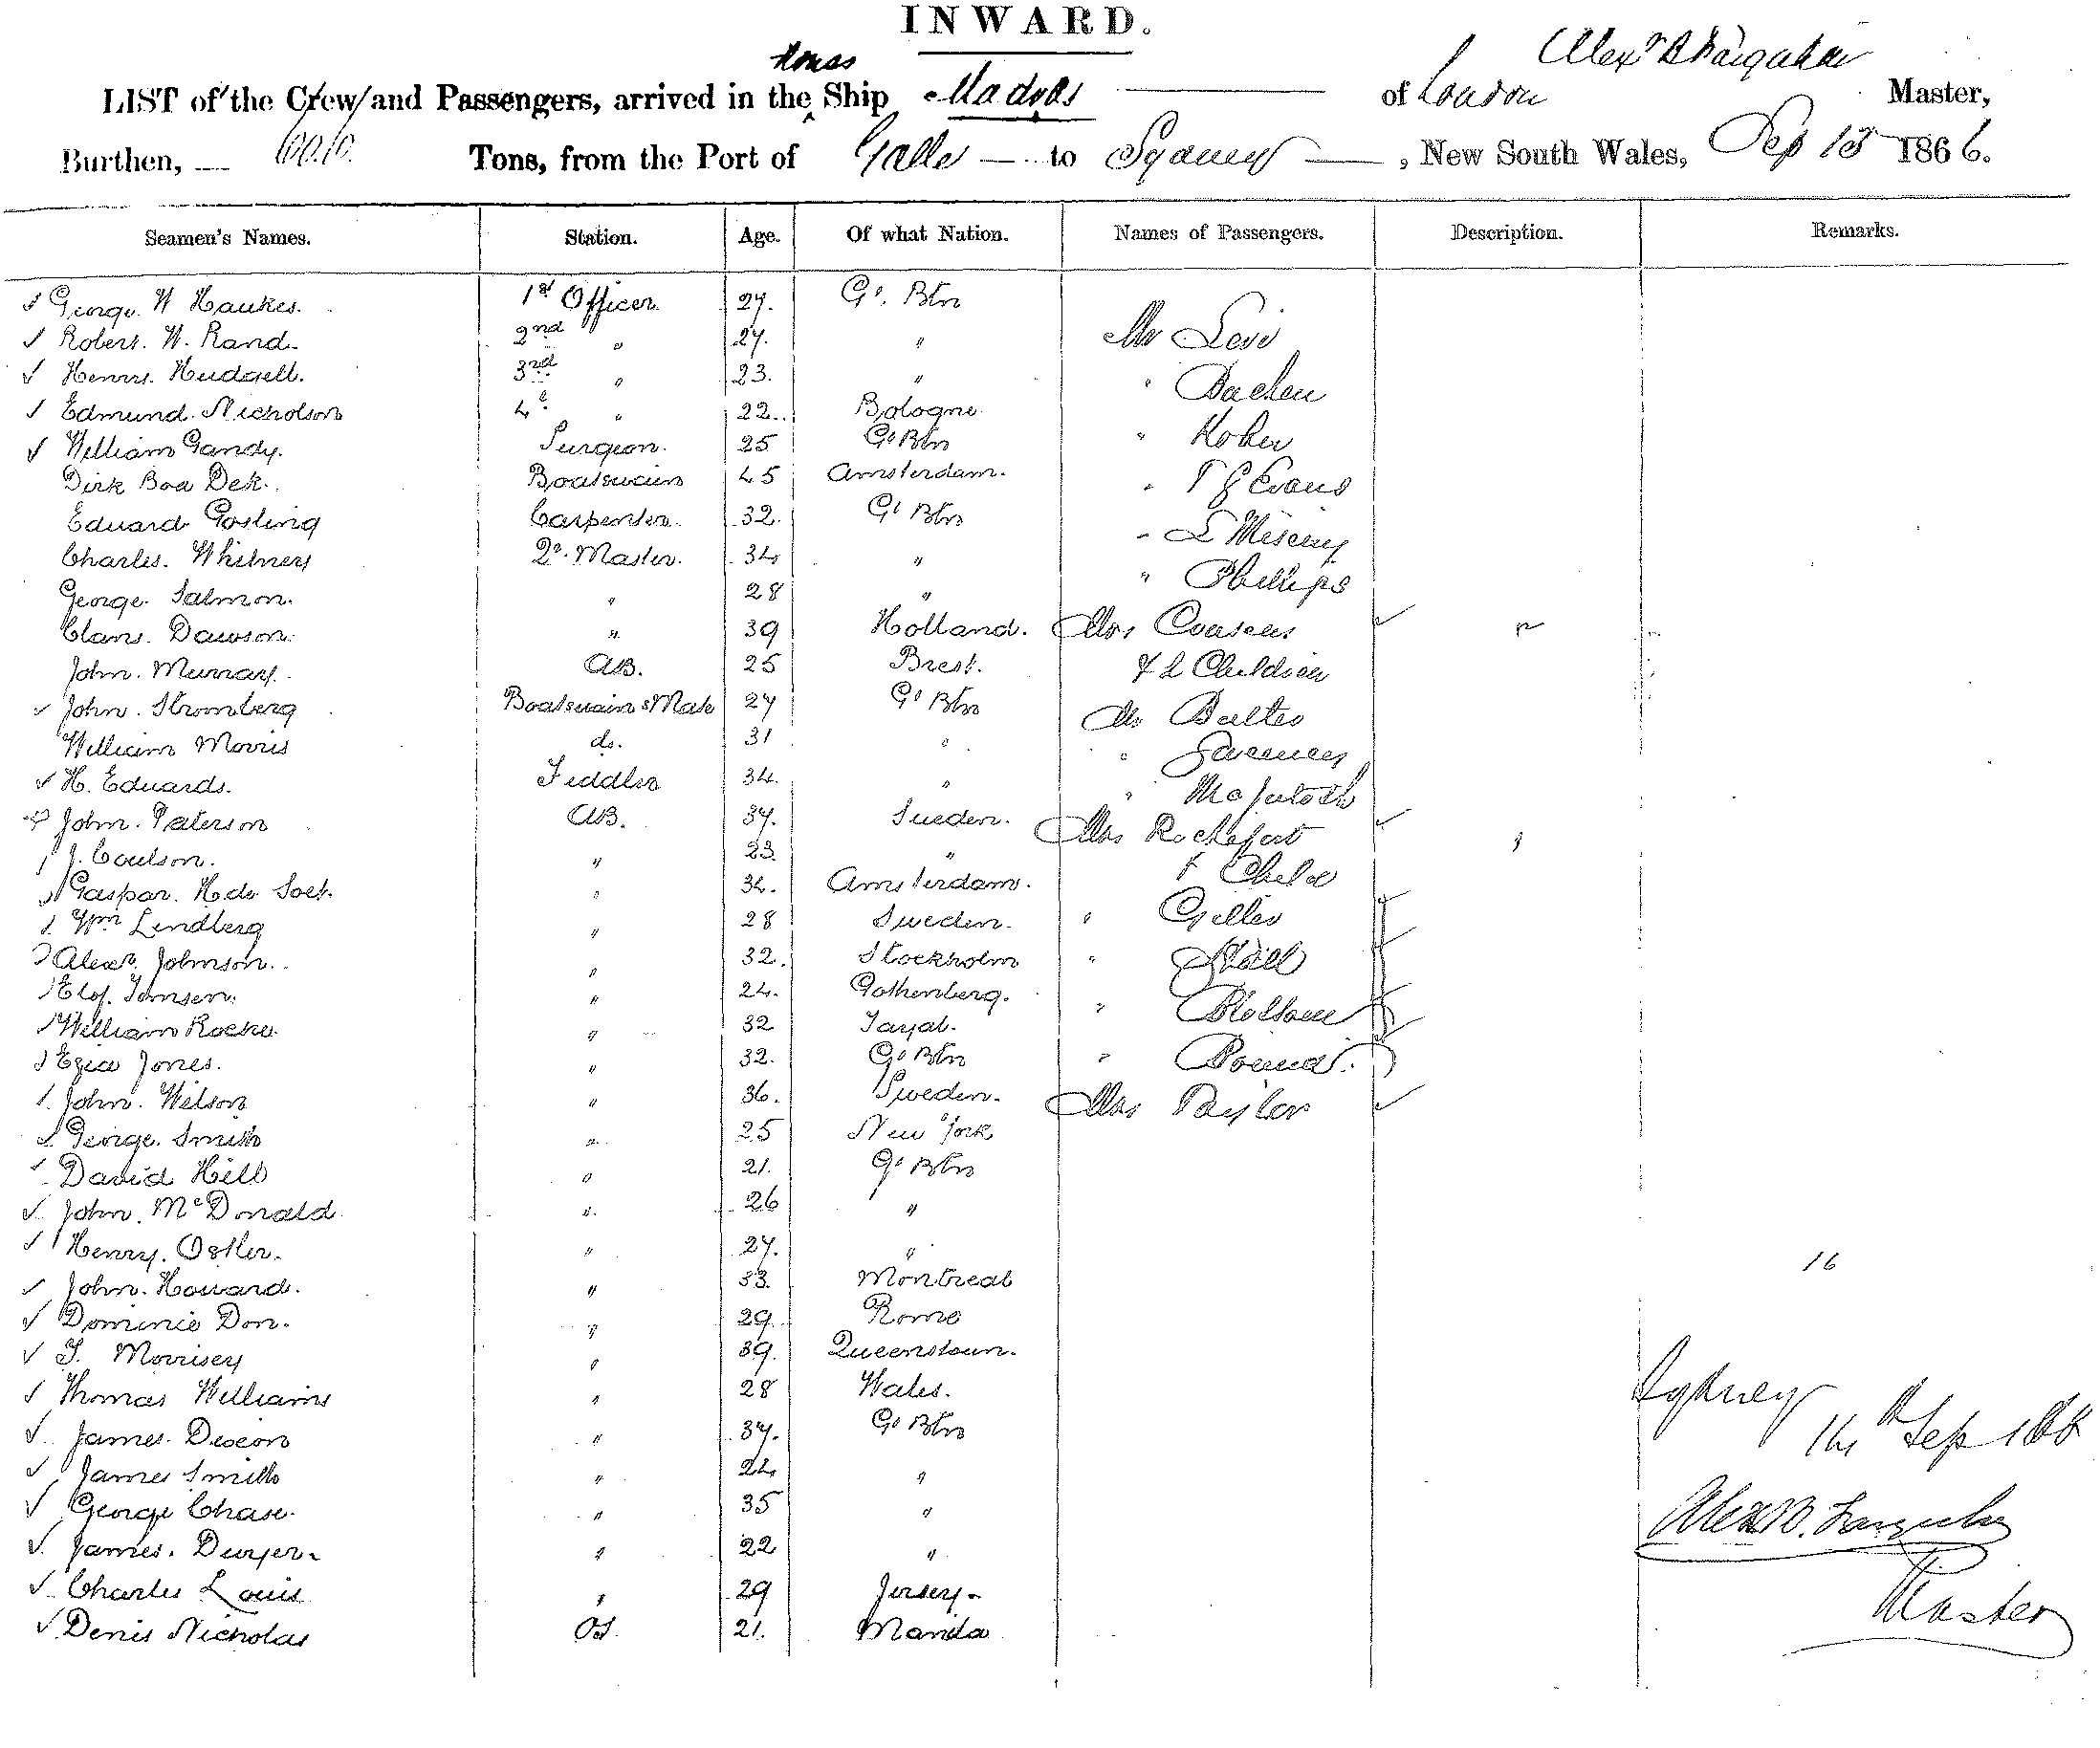 INWARD.
Alexr
LIST of the Crew and Passengers, arrived in the Ship Madras of London Master,
Burthen, Tons, from the Port of Galle to Sydney, New South Wales, Sep 13 1866.
Seamen's Names. Station. Age. Of what Nation. Names of Passengers. Description. Remarks.
George W Haukes. 1st Officer 27. Gt. Btn
Robert. W. Rand. 2nd " 27. " Mr Levi
Henry. Hudgell. 3rd " 23. " "
Edmund. Nicholson 4th " 22. Bologne
William Gandy. Surgeon. 25 Gt Btn "
Dirk Boa Dek. Boatswain 45 Amsterdam. " Evans
Eduard Gosling Carpenter. 32. Gt Btn
Charles. Whitney Qr. Master. 34 " "
George. Salmon. " 28 " " Phillips
Clans. Dawson. " 39 Holland. Mrs
John. Murray. AB. 25 Brest. & 2 Children
John. Stromberg Boatswains Mate 27 Gt Btn Mr
William Morris do. 31 " "
H. Eduards. Fiddler 34. " " McIntosh
John. Paterson AB. 37. Sueden. Mrs Rochefort
J. Coulson. " 23. " & Child
Gaspar. " 34. Amsterdam. "
Wm Lindberg " 28 Sweden.
Alexr. Johnson. " 32. Stockholm "
Elof. Jonsen. " 24. Gothenberg. "
William Rocke. " 32
Jones. " 32. Gt Btn "
John. Wilson " 36. Sweden. Mrs Taylor
George. Smith " 25 New York
David Hill " 21. Gt Btn
John. McDonald " 26 "
Henry. Ostler. " 27. "
16
John. Howard. " 33. Montreal
Dominic Don. " 29. Rome
T. Morrisey " 39. Queenstown.
Thomas Williams " 28 Wales. Sydney
James. Dixon " 37. Gt Btn 14th Sep 186
James Smith " 24 "
George Chase. " 35 "
James. Dwyer. " 22 " Master
Charles Louis " 29 Jersey.
Denis Nicholas OS. 21.